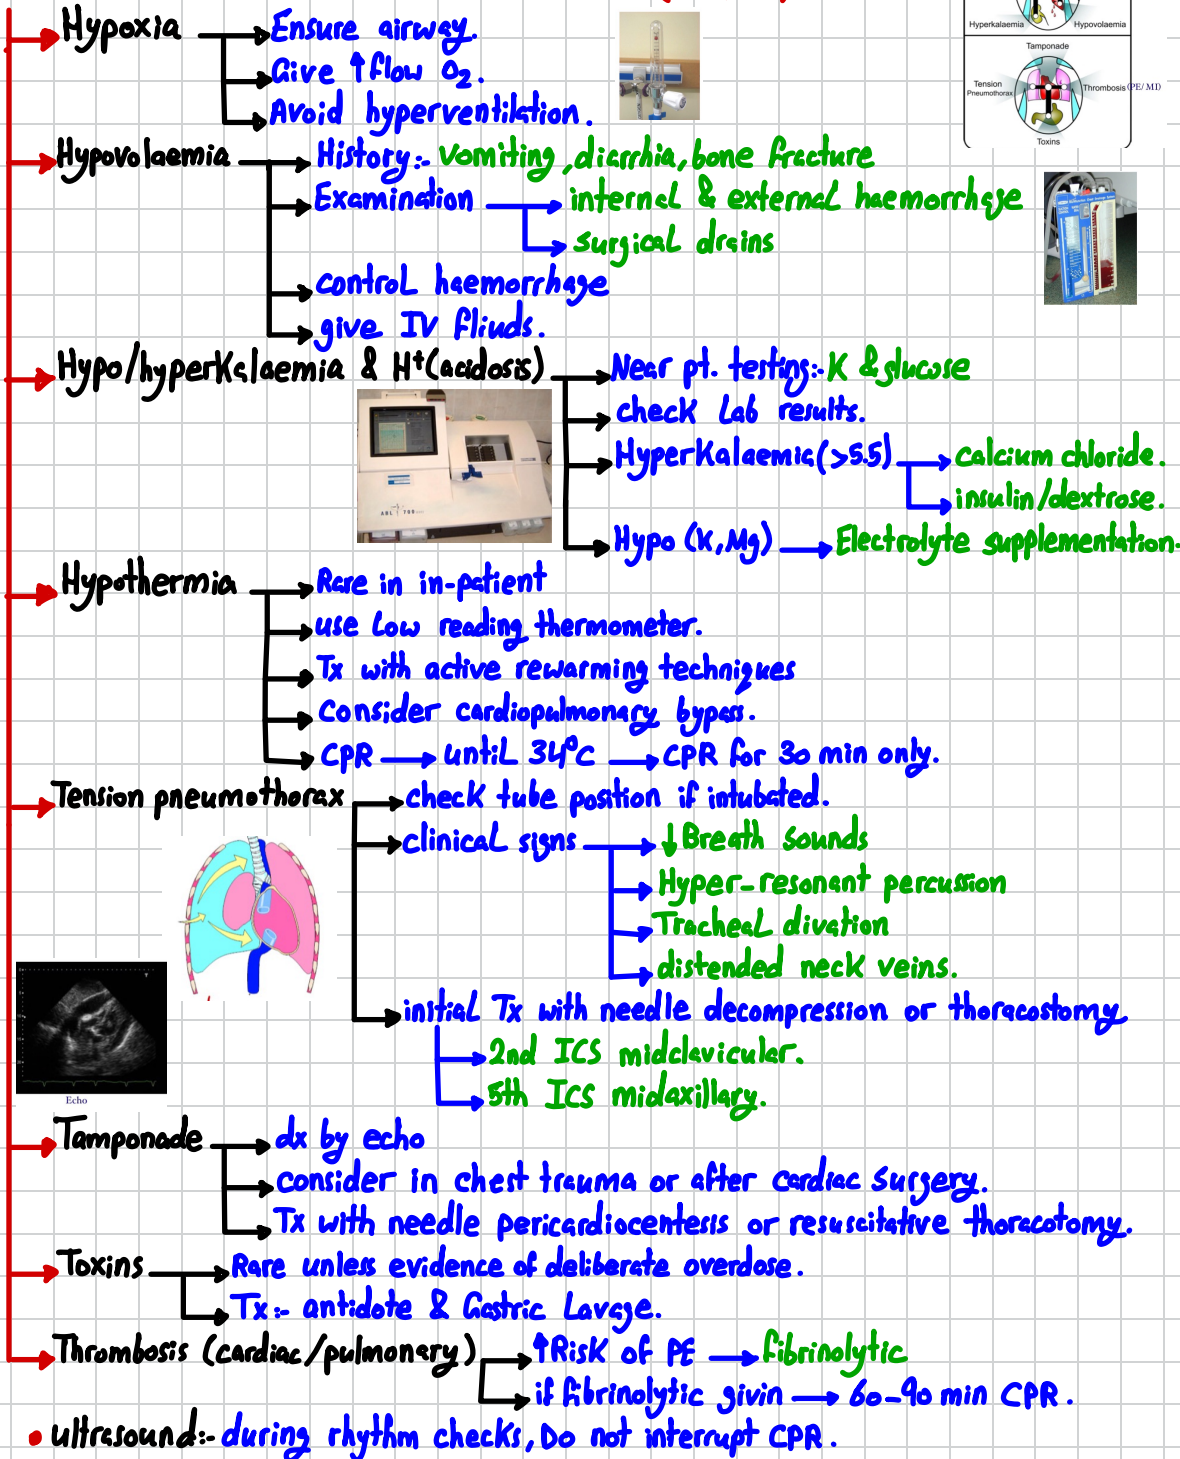 Hypoxia → Ensure airway.
Give ↑flow O₂.
Avoid hyperventilation.
Hyperkalaemia Hypovolaemia
Tamponade
Tension Pneumothorax Thrombosis (PE/MI)
Toxins
Hypovolaemia → History:- vomiting, diarrhia, bone fracture
Examination → internal & external haemorrhage
surgical drains
control haemorrhage
give IV fliuds.
Hypo/hyperkalaemia & H⁺(acidosis) → Near pt. testing:- K & glucose
check Lab results.
HyperKalaemia(>5.5) → calcium chloride.
insulin/dextrose.
Hypo (K,Mg) → Electrolyte supplementation.
ABL 700
Hypothermia → Rare in in-patient
use low reading thermometer.
Tx with active rewarming techniques
Consider cardiopulmonary bypass.
CPR → until 34°C → CPR for 30 min only.
Tension pneumothorax → check tube position if intubated.
clinical signs → ↓Breath sounds
Hyper-resonant percussion
Tracheal divation
distended neck veins.
initial Tx with needle decompression or thoracostomy
2nd ICS midclavicular.
5th ICS midaxillary.
Echo
Tamponade → dx by echo
consider in chest trauma or after cardiac surgery.
Tx with needle pericardiocentesis or resuscitative thoracotomy.
Toxins → Rare unless evidence of deliberate overdose.
Tx:- antidote & Gastric Lavage.
Thrombosis (cardiac/pulmonary) → ↑Risk of PE → fibrinolytic
if fibrinolytic givin → 60-90 min CPR.
• ultrasound:- during rhythm checks, Do not interrupt CPR.